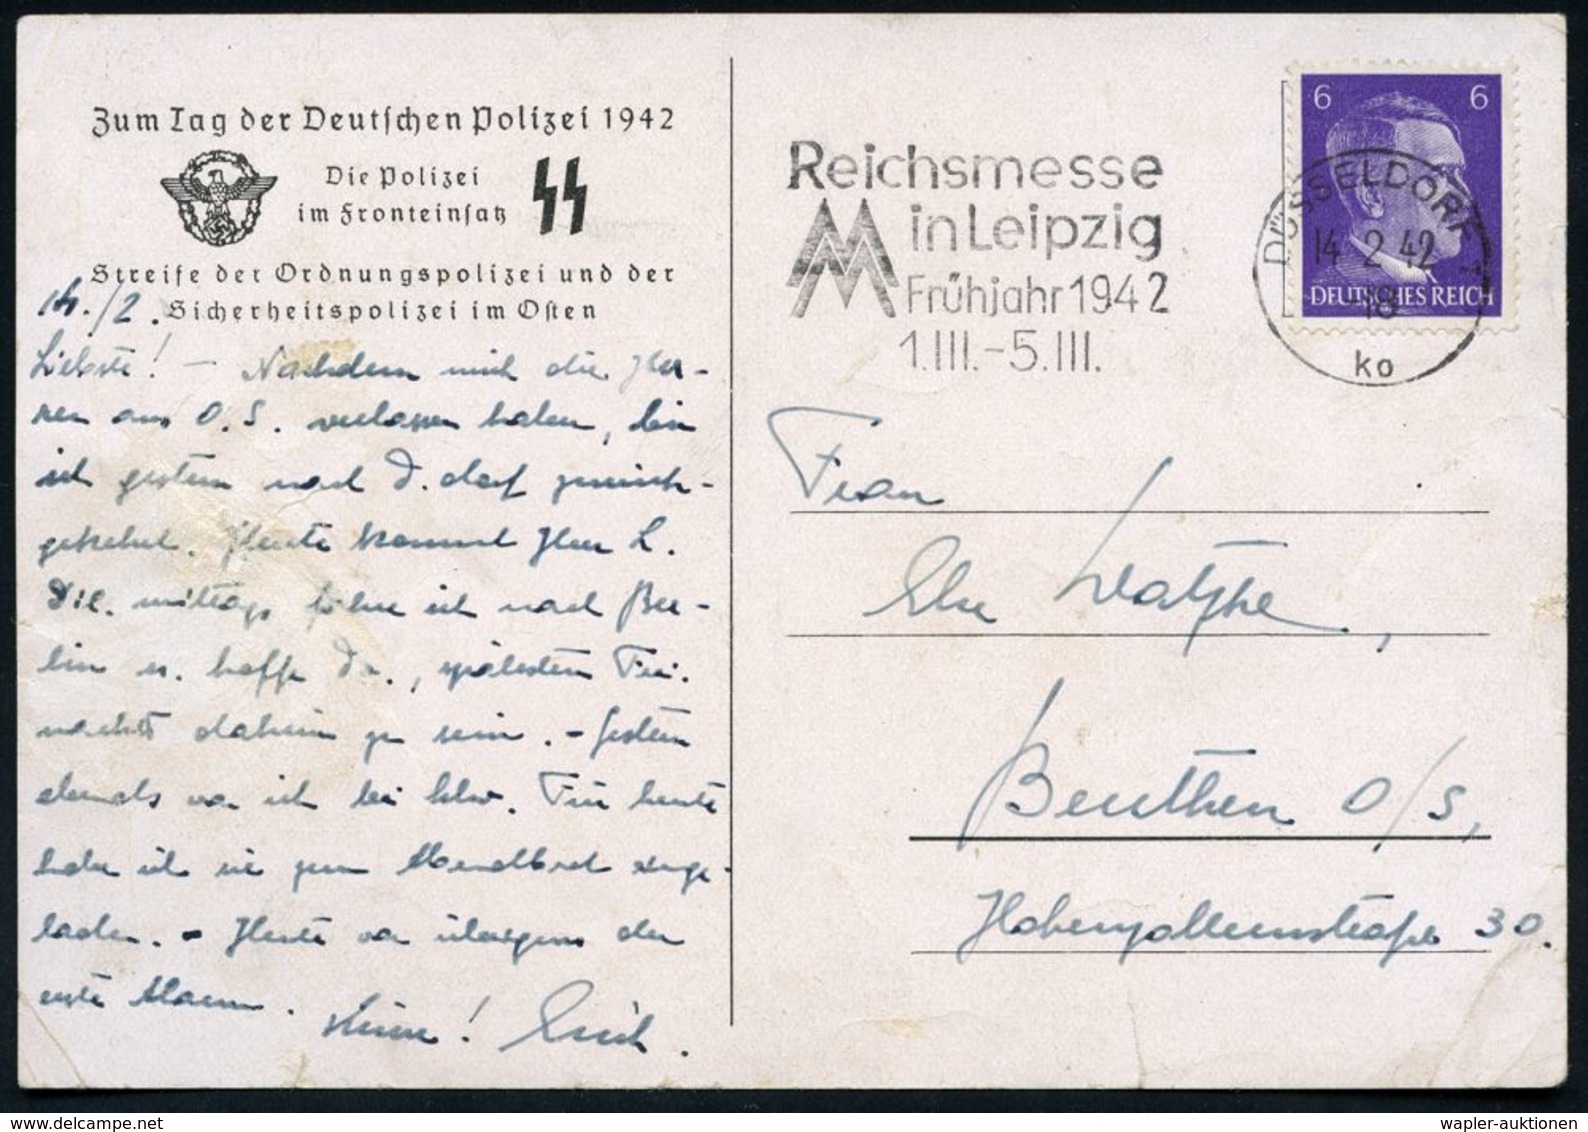 Zum Tag der Deutschen Polizei 1942
Die Polizei
im Fronteinsatz
Streife der Ordnungspolizei und der
Sicherheitspolizei im Osten
14./2.
Liebste! – Nachdem mich die Her-
ren aus O.S. verlassen haben, bin
ich gestern nach D.dorf zurück-
gekehrt. Heute kommt Herr L.
mittags fahre ich nach Ber-
lin u. hoffe Do., spätestens Frei.
nachts daheim zu sein. – Gestern
abends war ich bei Für heute
habe ich sie zum Abendbrot einge-
laden. – Heute war übrigens der
erste Alarm. Küsse! Erich.
Reichsmesse
in Leipzig
Frühjahr 1942
1.III.-5.III.
6 6
DEUTSCHES REICH
DÜSSELDORF 1
14.2.42.-18
ko
Frau
Else Watzke,
Beuthen O/S,
Hohenzollernstraße 30.
wapler-auktionen